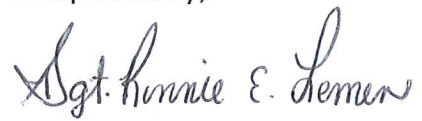 Sgt. Ronnie E. Lemen